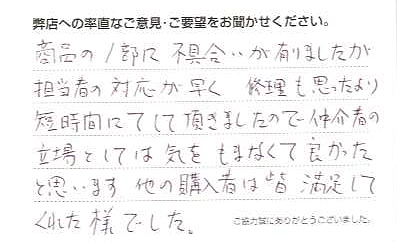 弊店への率直なご意見・ご要望をお聞かせください。
商品の1部に不具合いが有りましたが
担当者の対応が早く 修理も思ったより
短時間にてして頂きましたので仲介者の
立場としては気をもまなくて良かった
と思います 他の購入者は皆満足して
くれた様でした。
ご協力誠にありがとうございました。